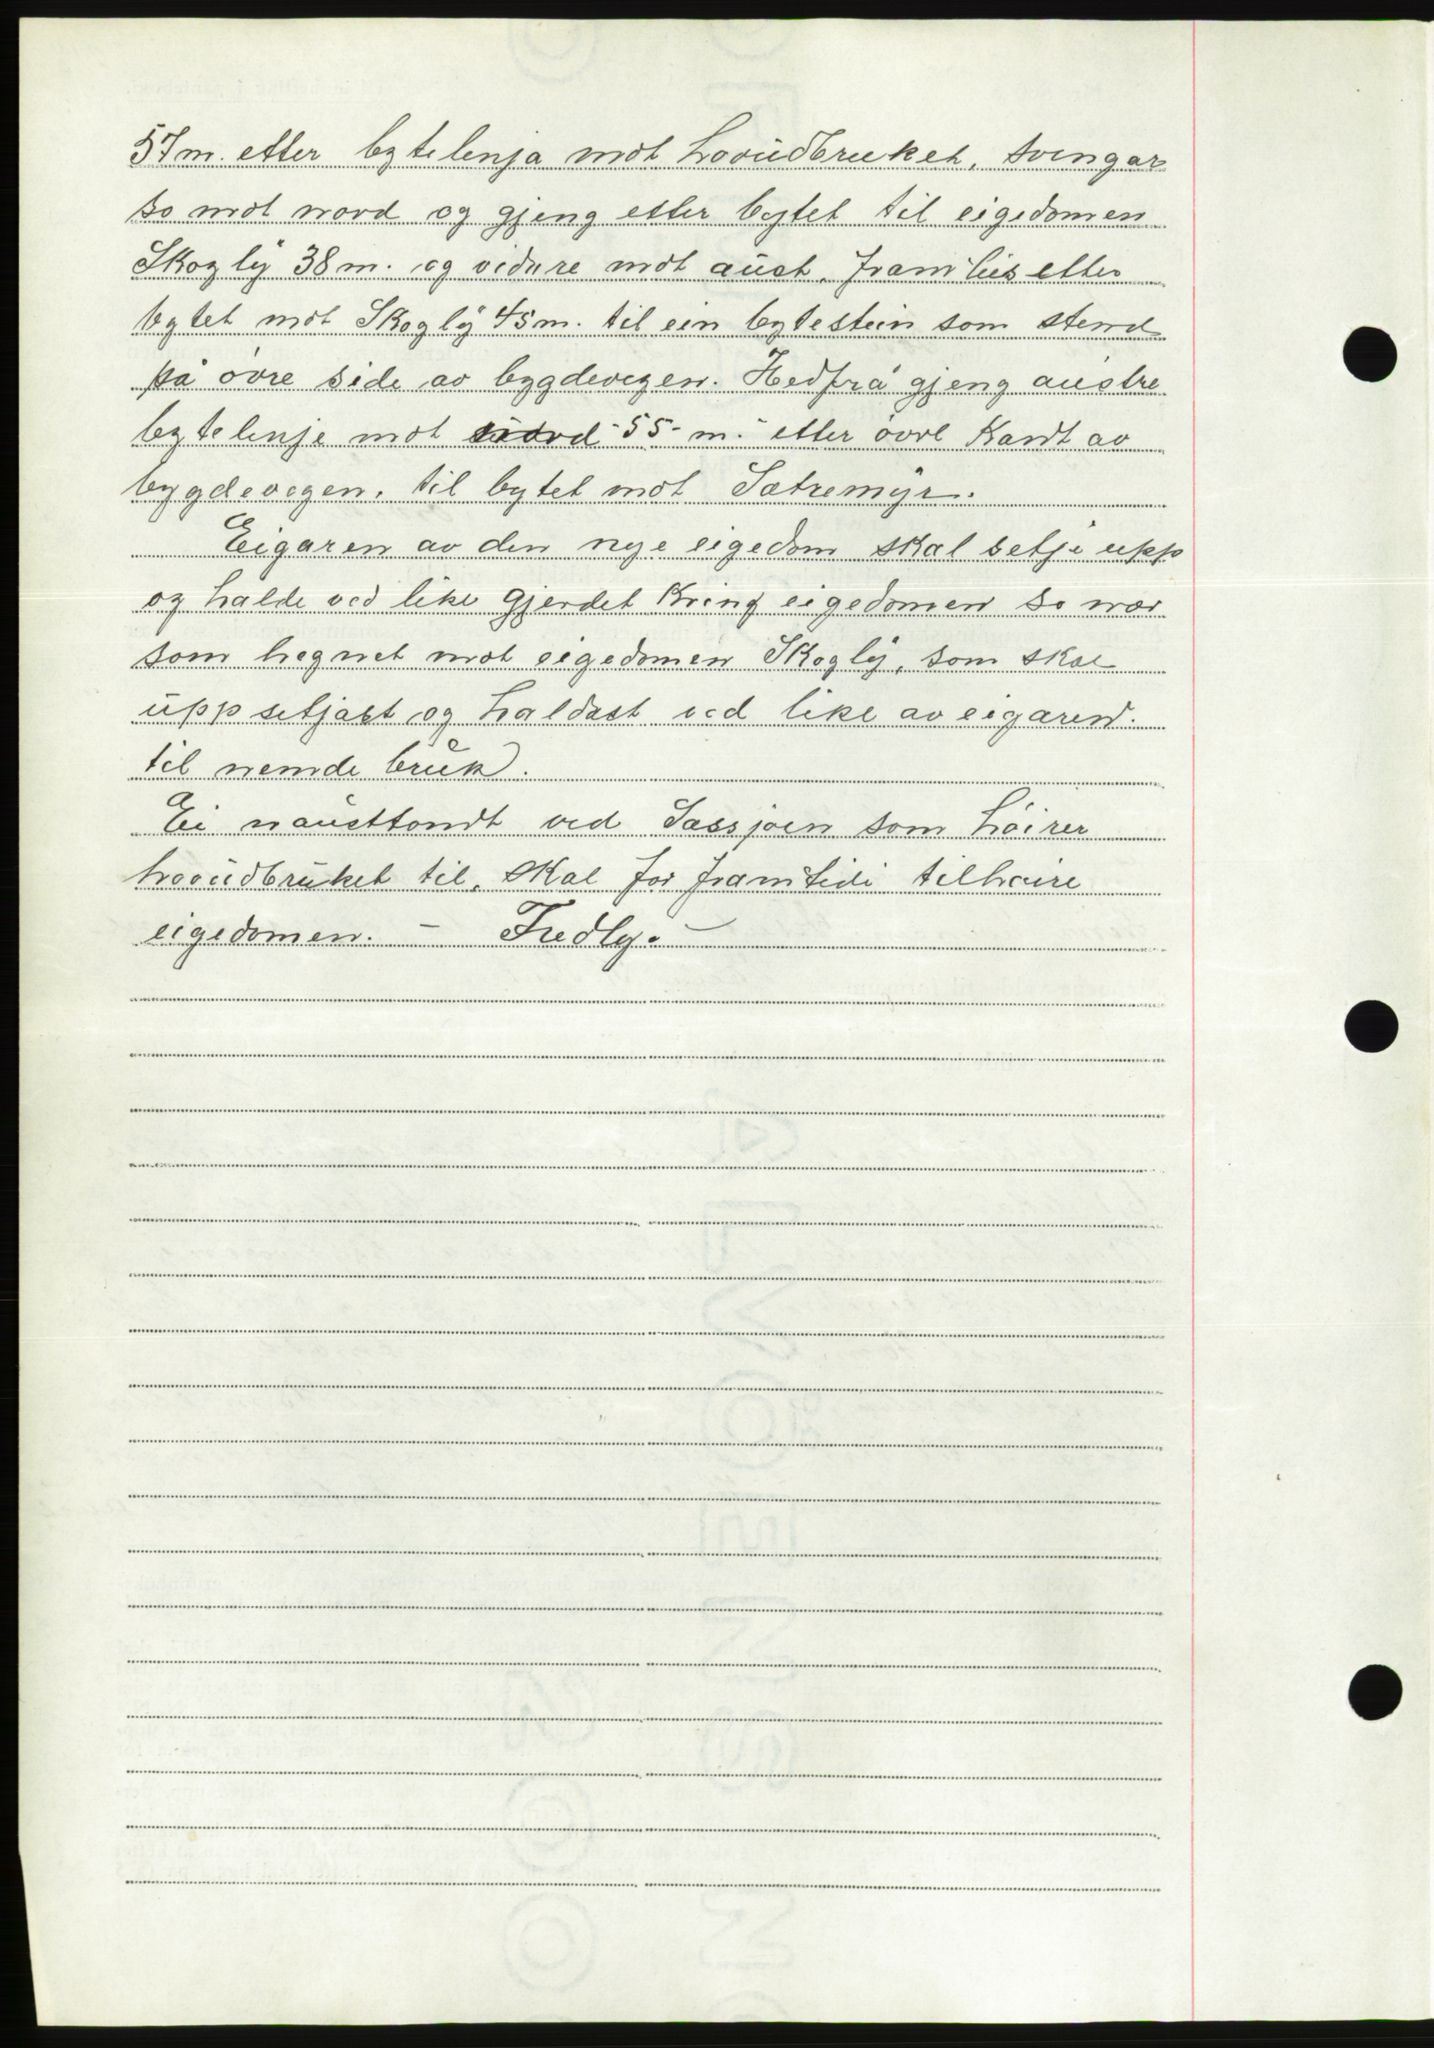 57 m. etter bytelenja mot hovudbruket, svingar
so mot nord og gjeng etter bytet til eigedomen
Skogly 38 m. og vidare mot aust, framleis etter
bytet mot Skogly 45 m. til ein bytestein som stend
på øvre side av bygdevegen. Hedfrå gjeng austre
bytelenje mot nord 55 m. etter øvre kant av
bygdevegen, til bytet mot Sætremyr.
Eigaren av den nye eigedom skal setje upp
og halde ved like gjerdet kring eigedomen so nær
som hegnet mot eigedomen Skogly, som skal
uppsetjast og haldast ved like av eigaren
til nemde bruk.
Ei nausttomt ved som høirer
hovudbruket til, skal for framtidi tilhøire
eigedomen. – Fredly. –